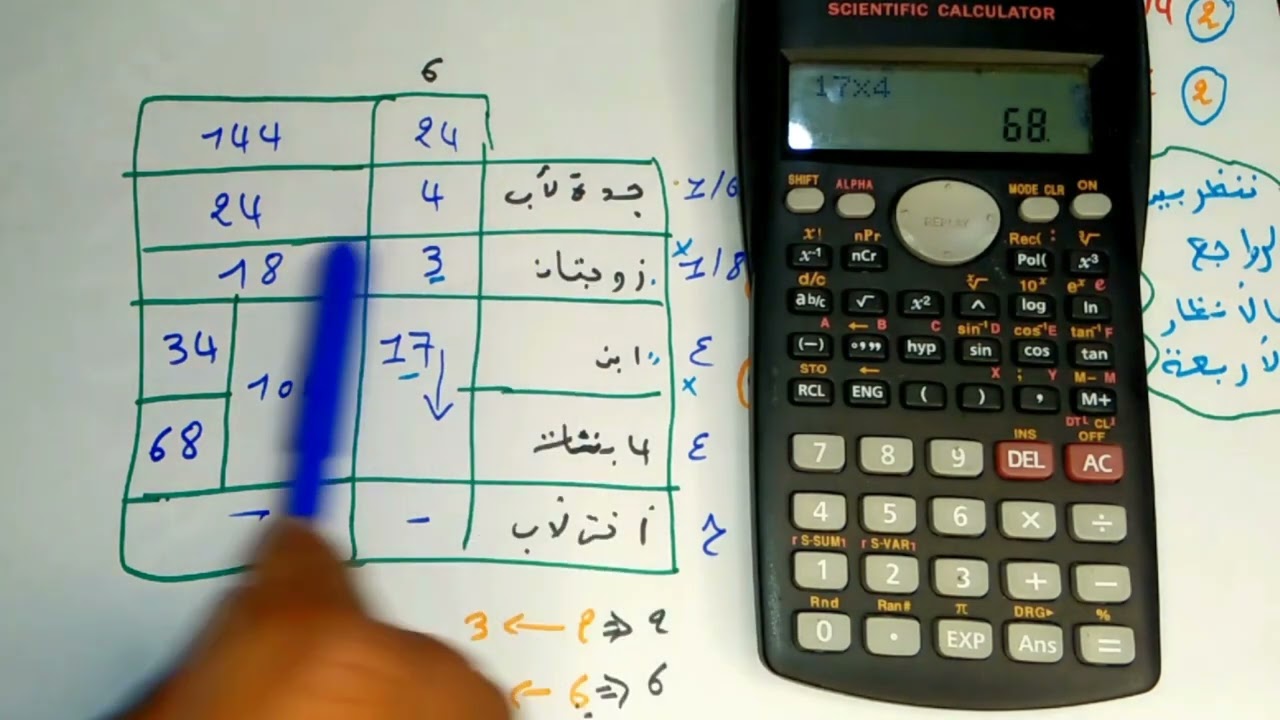 6
144 24
24 4 جدة لأب 1/6
18 3 زوجتان × 1/8
34 17 ابن ع
×
68 4 بنات ع
- - أخت لأب ح
3 ← 2 ⇒ 2
← 6 ⇒ 6
2
2
ننظر بين
الأنظار
SCIENTIFIC CALCULATOR
17×4
68.
SHIFT ALPHA MODE CLR ON
REPLAY
x! nPr Rec( : ³√
x⁻¹ nCr Pol( x³
d/c ˣ√ 10ˣ eˣ e
ab/c √ x² ^ log ln
A ← B C sin⁻¹ D cos⁻¹ E tan⁻¹ F
(−) °,,, hyp sin cos tan
STO ← X ; Y M− M
RCL ENG ( ) , M+
INS DT CL OFF
7 8 9 DEL AC
4 5 6 × ÷
S-SUM S-VAR
1 2 3 + −
Rnd Ran# π DRG▸ %
0 . EXP Ans =